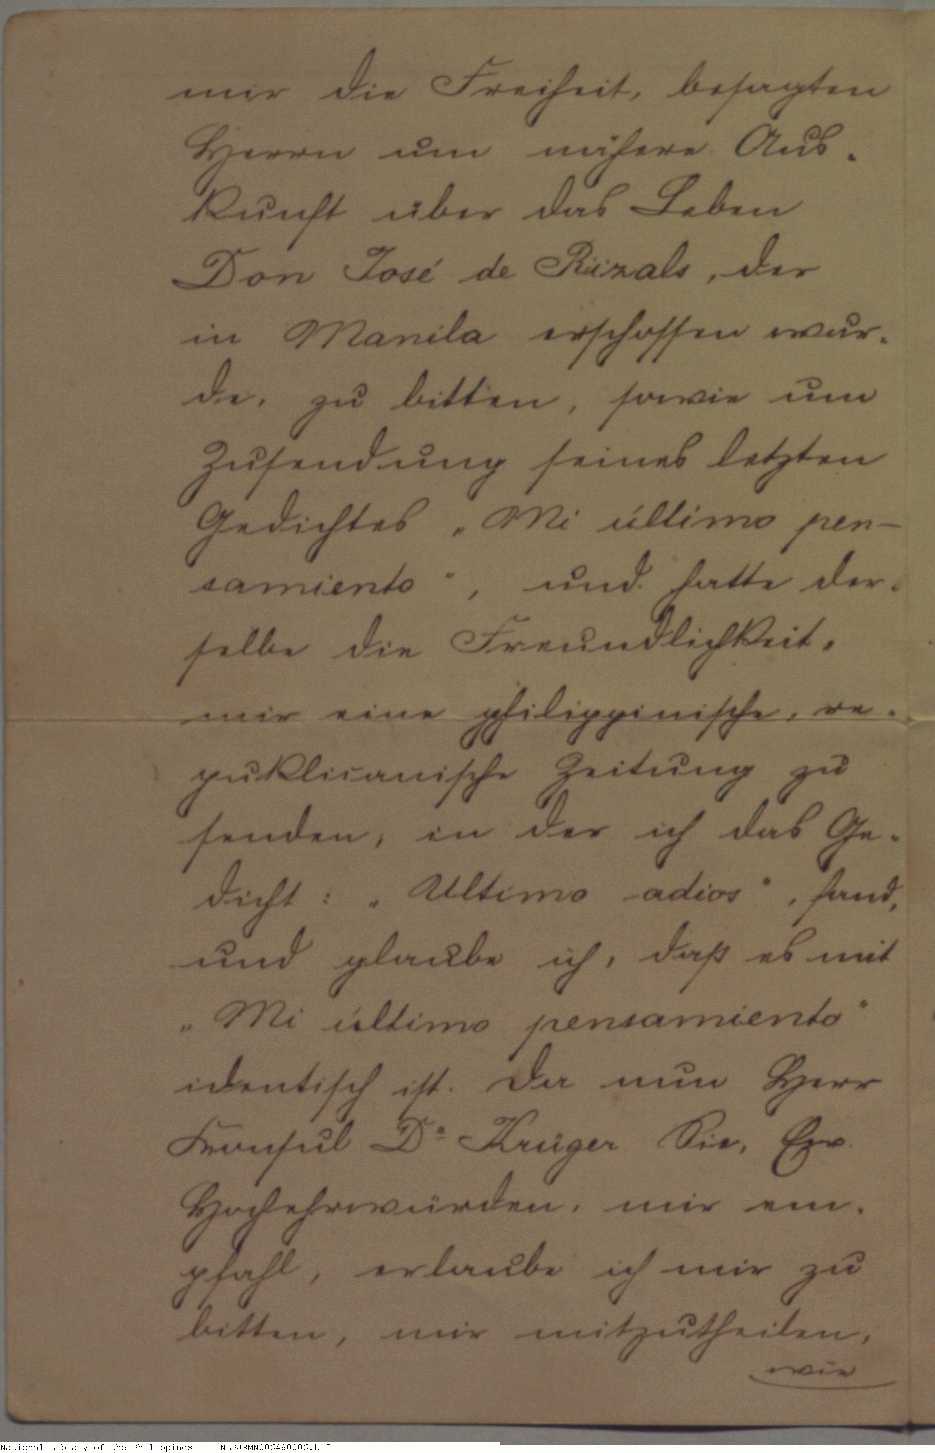 mir die Freiheit, besagten
Herrn um nähere Aus-
kunft über das Leben
Don José de Riizals, der
in Manila erschossen wur-
de, zu bitten, sowie um
Zusendung seines letzten
Gedichtes „Mi último pen-
samiento“, und hatte der-
selbe die Freundlichkeit,
mir eine philippinische, re-
puklicanische Zeitung zu
senden, in der ich das Ge-
dicht: „Ultimo adios“, fand,
und glaube ich, daß es mit
„Mi último pensamiento“
identisch ist. Da nun Herr
Konsul Dr Krüger Sie, Ew.
Hochehrwürden, mir em-
pfahl, erlaube ich mir zu
bitten, mir mitzutheilen,
wie
National Library of the Philippines